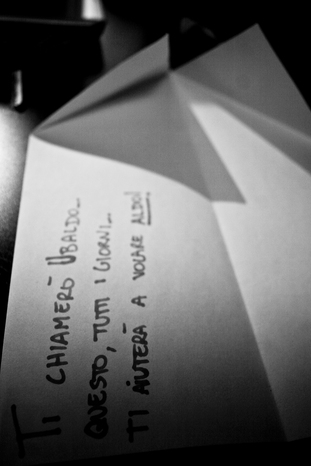 TI CHIAMERÒ UBALDO_
QUESTO, TUTTI I GIORNI_
TI AIUTERÀ A VOLARE ALDO!